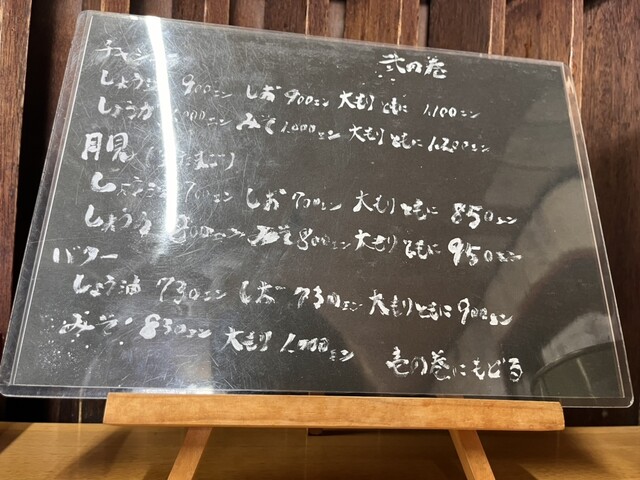 弐の巻
チャーシュー
しょうゆ 900エン しお 900エン 大もり ともに 1,100エン
しょうが 1,000エン みそ 1,000エン 大もり ともに 1,200エン
月見
しょうゆ 700エン しお 700エン 大もり ともに 850エン
しょうが 800エン みそ 800エン 大もり ともに 950エン
バター
しょう油 730エン しお 730エン 大もり ともに 900エン
みそ 830エン 大もり 1,000エン
壱の巻にもどる